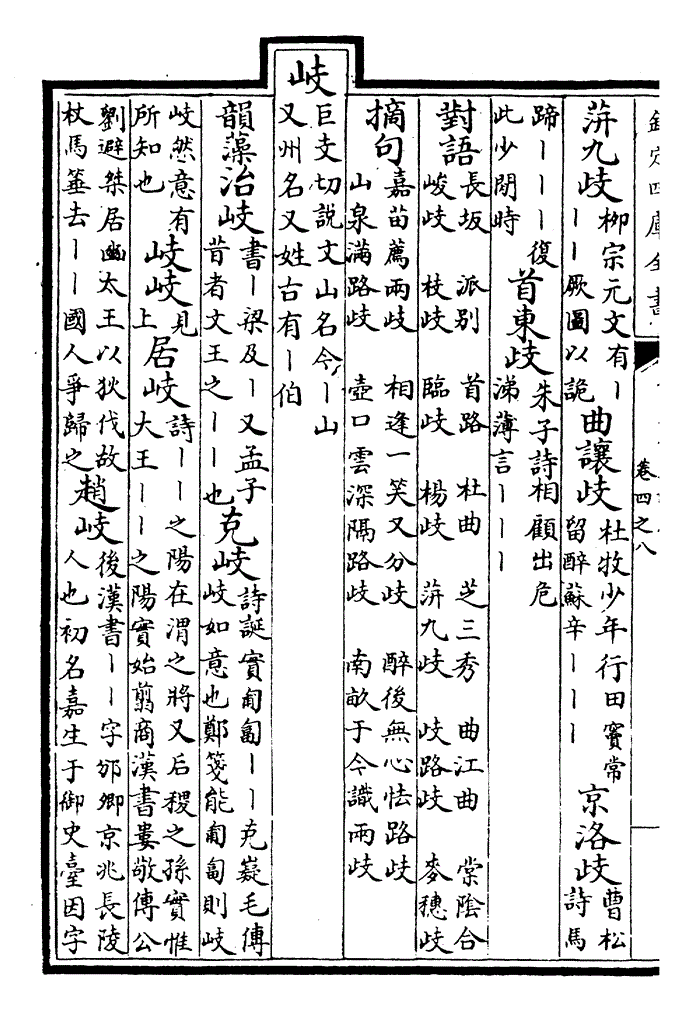 欽定四庫全書 卷四之八
蓱九歧 柳宗元文有丨丨丨厥圖以詭 曲讓歧 杜牧少年行田竇常留醉蘇辛丨丨丨 京洛歧 曹松詩馬
蹄丨丨丨復此少閒時 首東歧 朱子詩相顧出危涕薄言丨丨丨
對語 長坂 派别 首路 杜曲 芝三秀 曲江曲 棠陰合
峻歧 枝歧 臨歧 楊歧 蓱九歧 歧路歧 麥穗歧
摘句 嘉苗薦兩歧 相逢一笑又分歧 醉後無心怯路歧
山泉滿路歧 壺口雲深隔路歧 南畝于今識兩歧
岐 巨支切説文山名今丨山又州名又姓古有丨伯
韻藻 治岐 書丨梁及丨又孟子昔者文王之丨丨也 克岐 詩誕實匍匐丨丨克嶷毛傳岐如意也鄭箋能匍匐則岐
岐然意有所知也 岐岐 見上 居岐 詩丨丨之陽在渭之將又后稷之孫實惟大王丨丨之陽實始翦商漢書婁敬傳公
劉避桀居豳太王以狄伐故杖馬箠去丨丨國人爭歸之 趙岐 後漢書丨丨字邠卿京兆長陵人也初名嘉生于御史臺因字